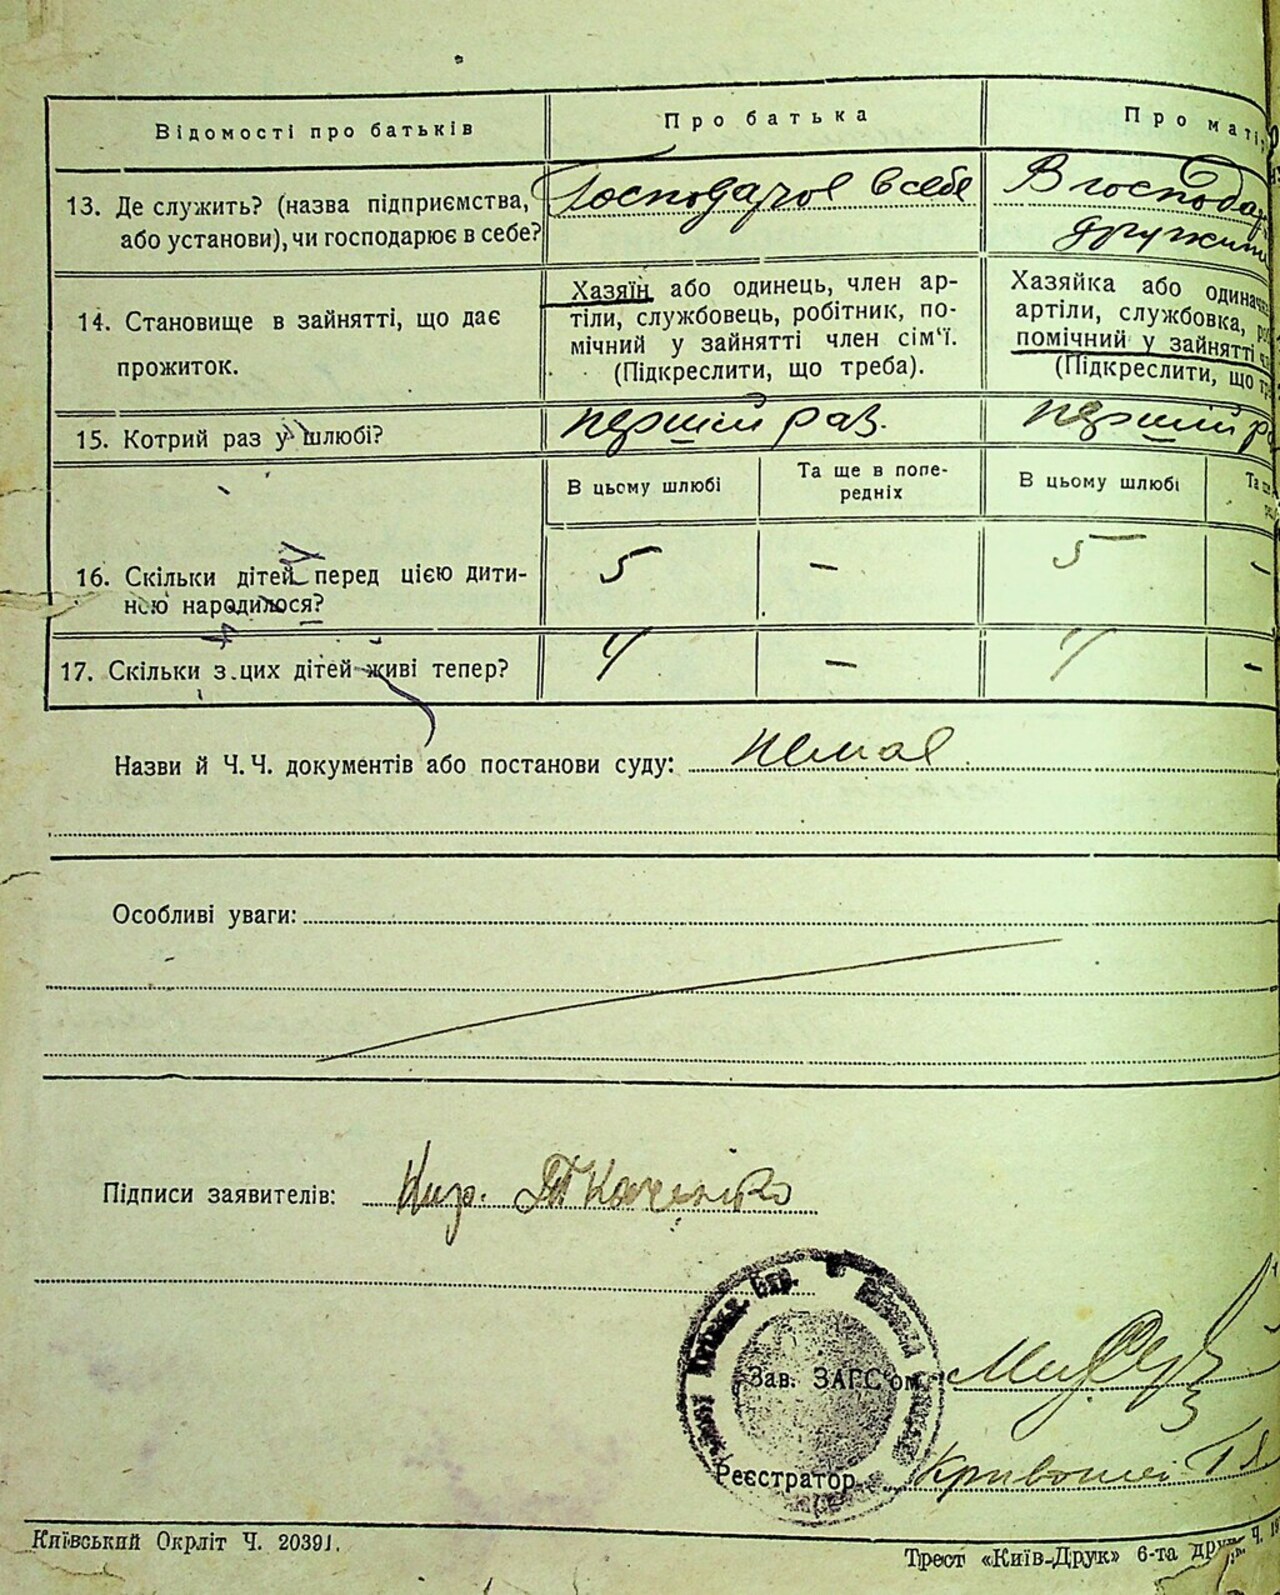 Відомості про батьків
Про батька
Про матір
13. Де служить? (назва підприємства,
або установи), чи господарює в себе?
Господарює в себе
В господар
дружини
14. Становище в зайнятті, що дає
прожиток.
Хазяїн або одинець, член ар-
тіли, службовець, робітник, по-
мічний у зайнятті член сім'ї.
(Підкреслити, що треба).
Хазяйка або одиначка
артіли, службовка,
помічний у зайнятті
(Підкреслити, що
15. Котрий раз у шлюбі?
перший раз.
перший
В цьому шлюбі
Та ще в попе-
редніх
В цьому шлюбі
Та ще
16. Скільки дітей перед цією дити-
ною народилося?
5
—
5
—
17. Скільки з цих дітей живі тепер?
4
—
4
—
Назви й Ч.Ч. документів або постанови суду: немає
Особливі уваги:
Підписи заявителів: Кир. Ткаченко
Зав. ЗАГС'ом
Реєстратор
Київський Окрліт Ч. 20391.
Трест «Київ-Друк» 6-та друк. Ч.